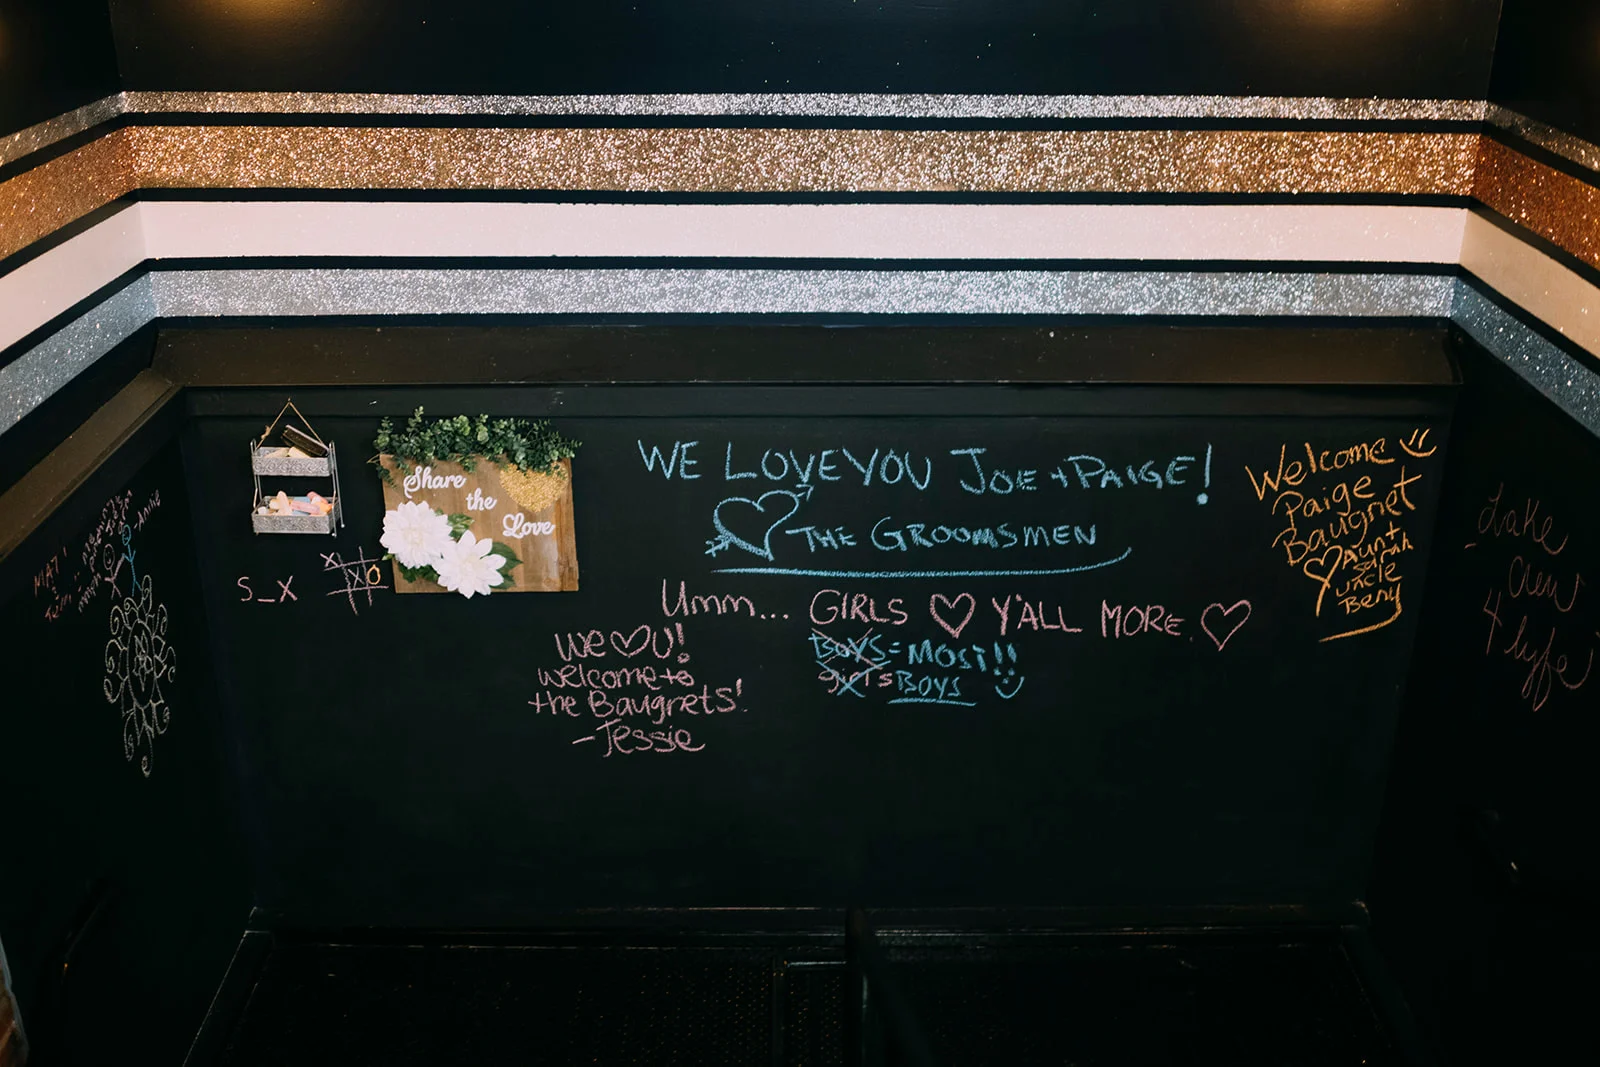 Share
the
Love
WE LOVE YOU JOE + PAIGE!
THE GROOMSMEN
Umm... GIRLS ♡ Y'ALL MORE.♡
BOYS = MOST!!
girls BOYS
We ♡ U!
welcome to
the Baugnets!
-Jessie
Welcome
Paige
Baugnet
♡ Aunt
Sarah
uncle
Beny
S_X
X
XXO
-Annie
Lake
Crew
4
lyfe